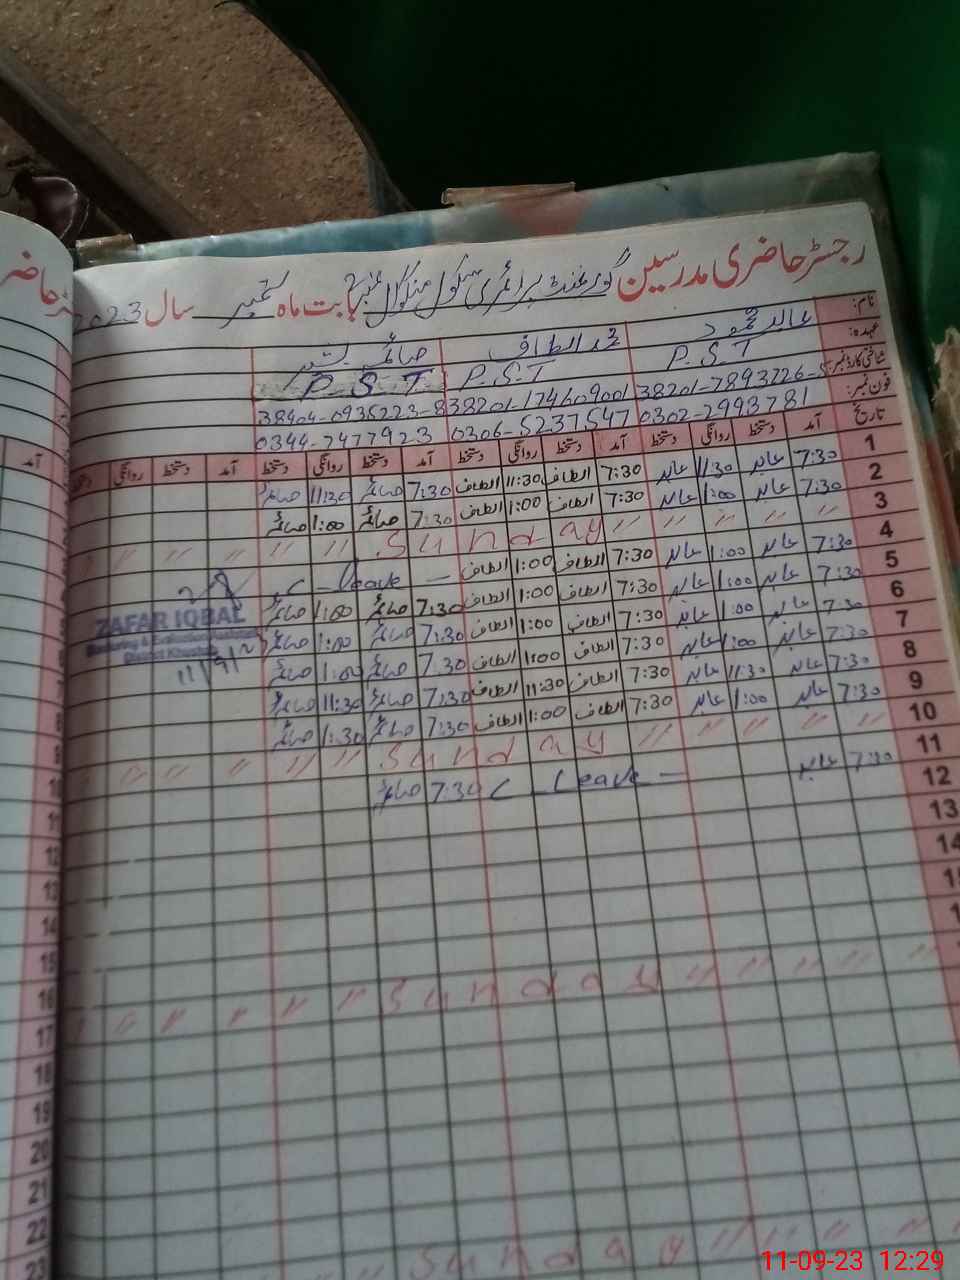 رجسٹر حاضری مدرسین گورنمنٹ پرائمری سکول بابت ماہ ستمبر سال 2023
نام: عابد محمود محمد الطاف صائمہ
عہدہ: P.S.T P.S.T P.S.T
شناختی کارڈ نمبر: 38201-7893726-5 38201-1746090-1 38404-0935223-8
فون نمبر: 0302-2993781 0306-5237547 0344-7477923
تاریخ آمد دستخط روانگی دستخط آمد دستخط روانگی دستخط آمد دستخط روانگی دستخط آمد دستخط روانگی
1 7:30 عابد 11:30 عابد 7:30 الطاف 11:30 الطاف 7:30 صائمہ 11:30 صائمہ
2 7:30 عابد 1:00 عابد 7:30 الطاف 1:00 الطاف 7:30 صائمہ 1:00 صائمہ
3 " " " " " Sunday " " " " "
4 7:30 عابد 1:00 عابد 7:30 الطاف 1:00 الطاف — leave —
5 7:30 عابد 1:00 عابد 7:30 الطاف 1:00 الطاف 7:30 صائمہ 1:00 صائمہ
6 7:30 عابد 1:00 عابد 7:30 الطاف 1:00 الطاف 7:30 صائمہ 1:00 صائمہ
7 7:30 عابد 1:00 عابد 7:30 الطاف 1:00 الطاف 7:30 صائمہ 1:00 صائمہ
8 7:30 عابد 11:30 عابد 7:30 الطاف 11:30 الطاف 7:30 صائمہ 11:30 صائمہ
9 7:30 عابد 1:00 عابد 7:30 الطاف 1:00 الطاف 7:30 صائمہ 1:30 صائمہ
10 " " " " " Sunday " " " " "
11 7:30 عابد — Leave — 7:30 صائمہ
12
13
14
" " " " " Sunday " " " " "
" " " " Sunday
ZAFAR IQBAL
Monitoring & Evaluation Assistant
District Khushab
11/9/23
آمد
10
11
12
13
14
15
16
17
18
19
20
21
22
23
11-09-23 12:29